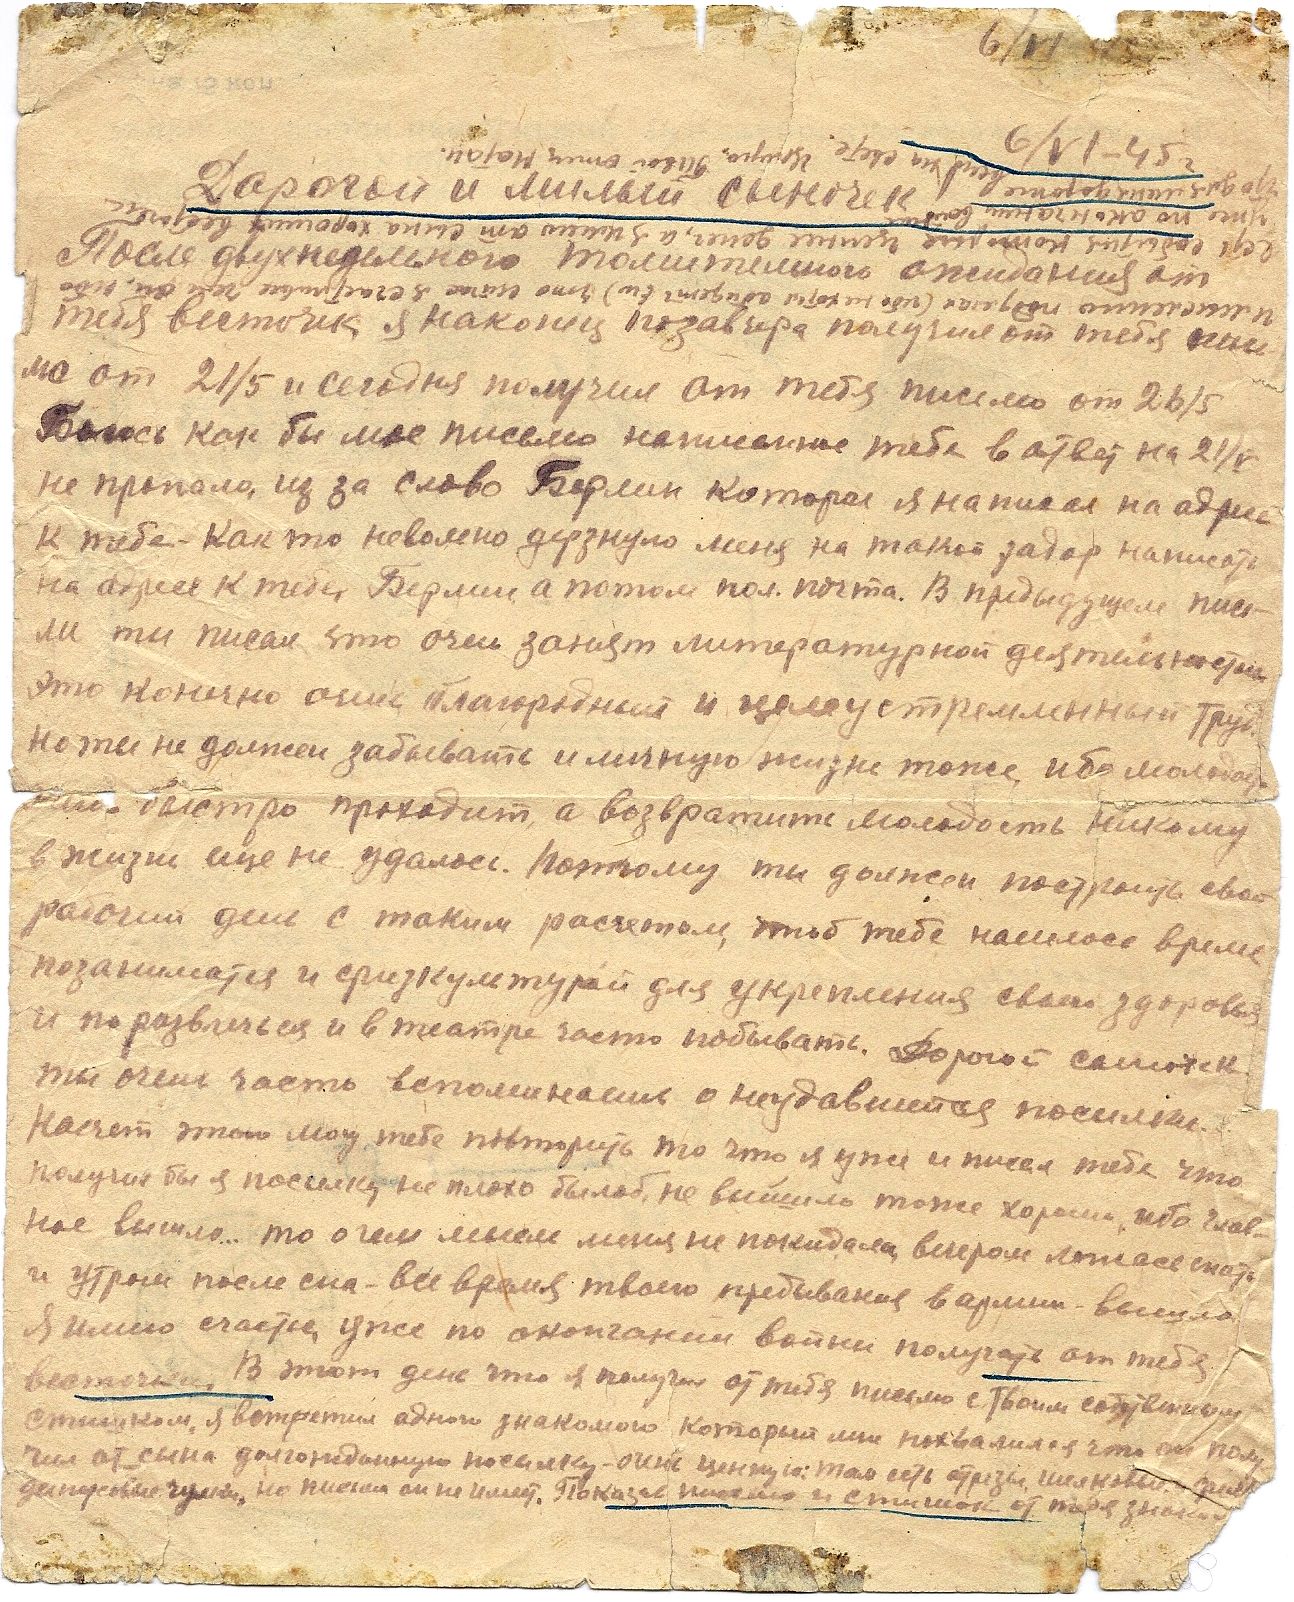 6/VI
6/VI-45 г
Дорогой и милый сыночек
После двухнедельного томительного ожидания от
тебя весточек я наконец позавчера получил от тебя пись
мо от 21/5 и сегодня получил от тебя письмо от 26/5
Боюсь как бы мое письмо написанное тебе в ответ на 21/V
не пропало, из за слово Берлин которое я написал на адрес
к тебе - Как то невольно дерзнуло меня на такой задор написать
на адрес к тебе, Берлин, а потом пол. почта. В предыдущем пись-
ми ты писал что очень занят литературной деятельностью
это конечно очень благородный и целеустремленный труд.
но ты не должен забывать и личную жизнь тоже, ибо молодос
быстро проходит, а возвратить молодость никому
в жизни еще не удалось. Поэтому ты должен построить свой
рабочий день с таким расчетом, чтоб тебе нашлось время
позаниматся и физкультурой для укрепления своего здоровья
и поразвлечься и в театре часто побывать. Дорогой сыночек
ты очень часто вспоминаешь о неудавшейся посылки.
Насчет этого могу тебе повторить то что я уже и писал тебе что
получил бы я посылку, не плохо былоб, не вышло тоже хорошо, ибо глав-
ное вышло... то о чем мысль меня не покидала, вечером ложась спать
и утром после сна - все время твоего пребывания в армии - вышло
Я имею счастье, уже по окончании войны получать от тебя
весточки. В этот день что я получил от тебя письмо с твоим собственным
стишком, я встретил одного знакомого который мне похвалился что он полу
чил от сына долгожданную посылку - очень ценную: там есть отрезы, шелковые
чулки, но письма он не имеет. Показал письмо и стишок от тебя знаком
и мысленно подумал (ибо не хотел обидеть его) что я счастливее чем он, ибо
есть события которые ценнее денег, а я имею от сына хороших весточек
уже по окончании войны
что для меня дороже всего на свете. Целую, Твой отец Натан.
пок 5/